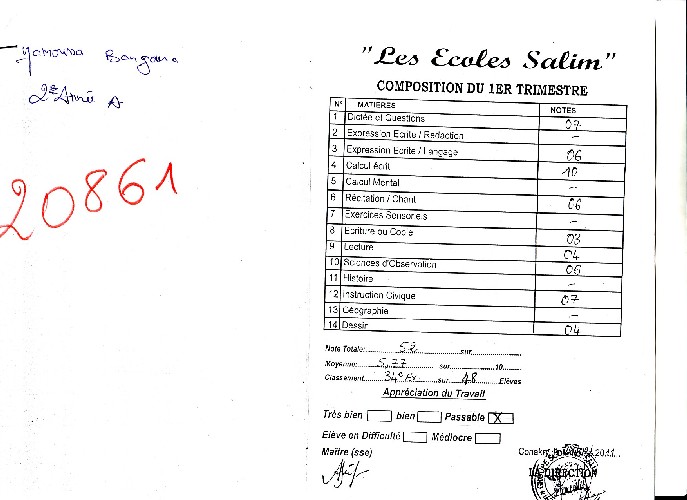 Bangoura
2è Année A
20861
"Les Ecoles Salim"
COMPOSITION DU 1ER TRIMESTRE
N° MATIERES NOTES
1 Dictée et Questions 07
2 Expression Ecrite / Rédaction -
3 Expression Ecrite / Langage 06
4 Calcul écrit 10
5 Calcul Mental -
6 Récitation / Chant 06
7 Exercices Sensoriels -
8 Ecriture ou Copie 03
9 Lecture 04
10 Sciences d'Observation 05
11 Histoire -
12 Instruction Civique 07
13 Géographie -
14 Dessin 04
Note Totale: 52 sur
Moyenne: 5,77 sur 10
Classement 34e Ex sur 48 Elèves
Appréciation du Travail
Très bien bien Passable X
Elève en Difficulté Médiocre
Maître (sse) Conakry, 2011
LA DIRECTION